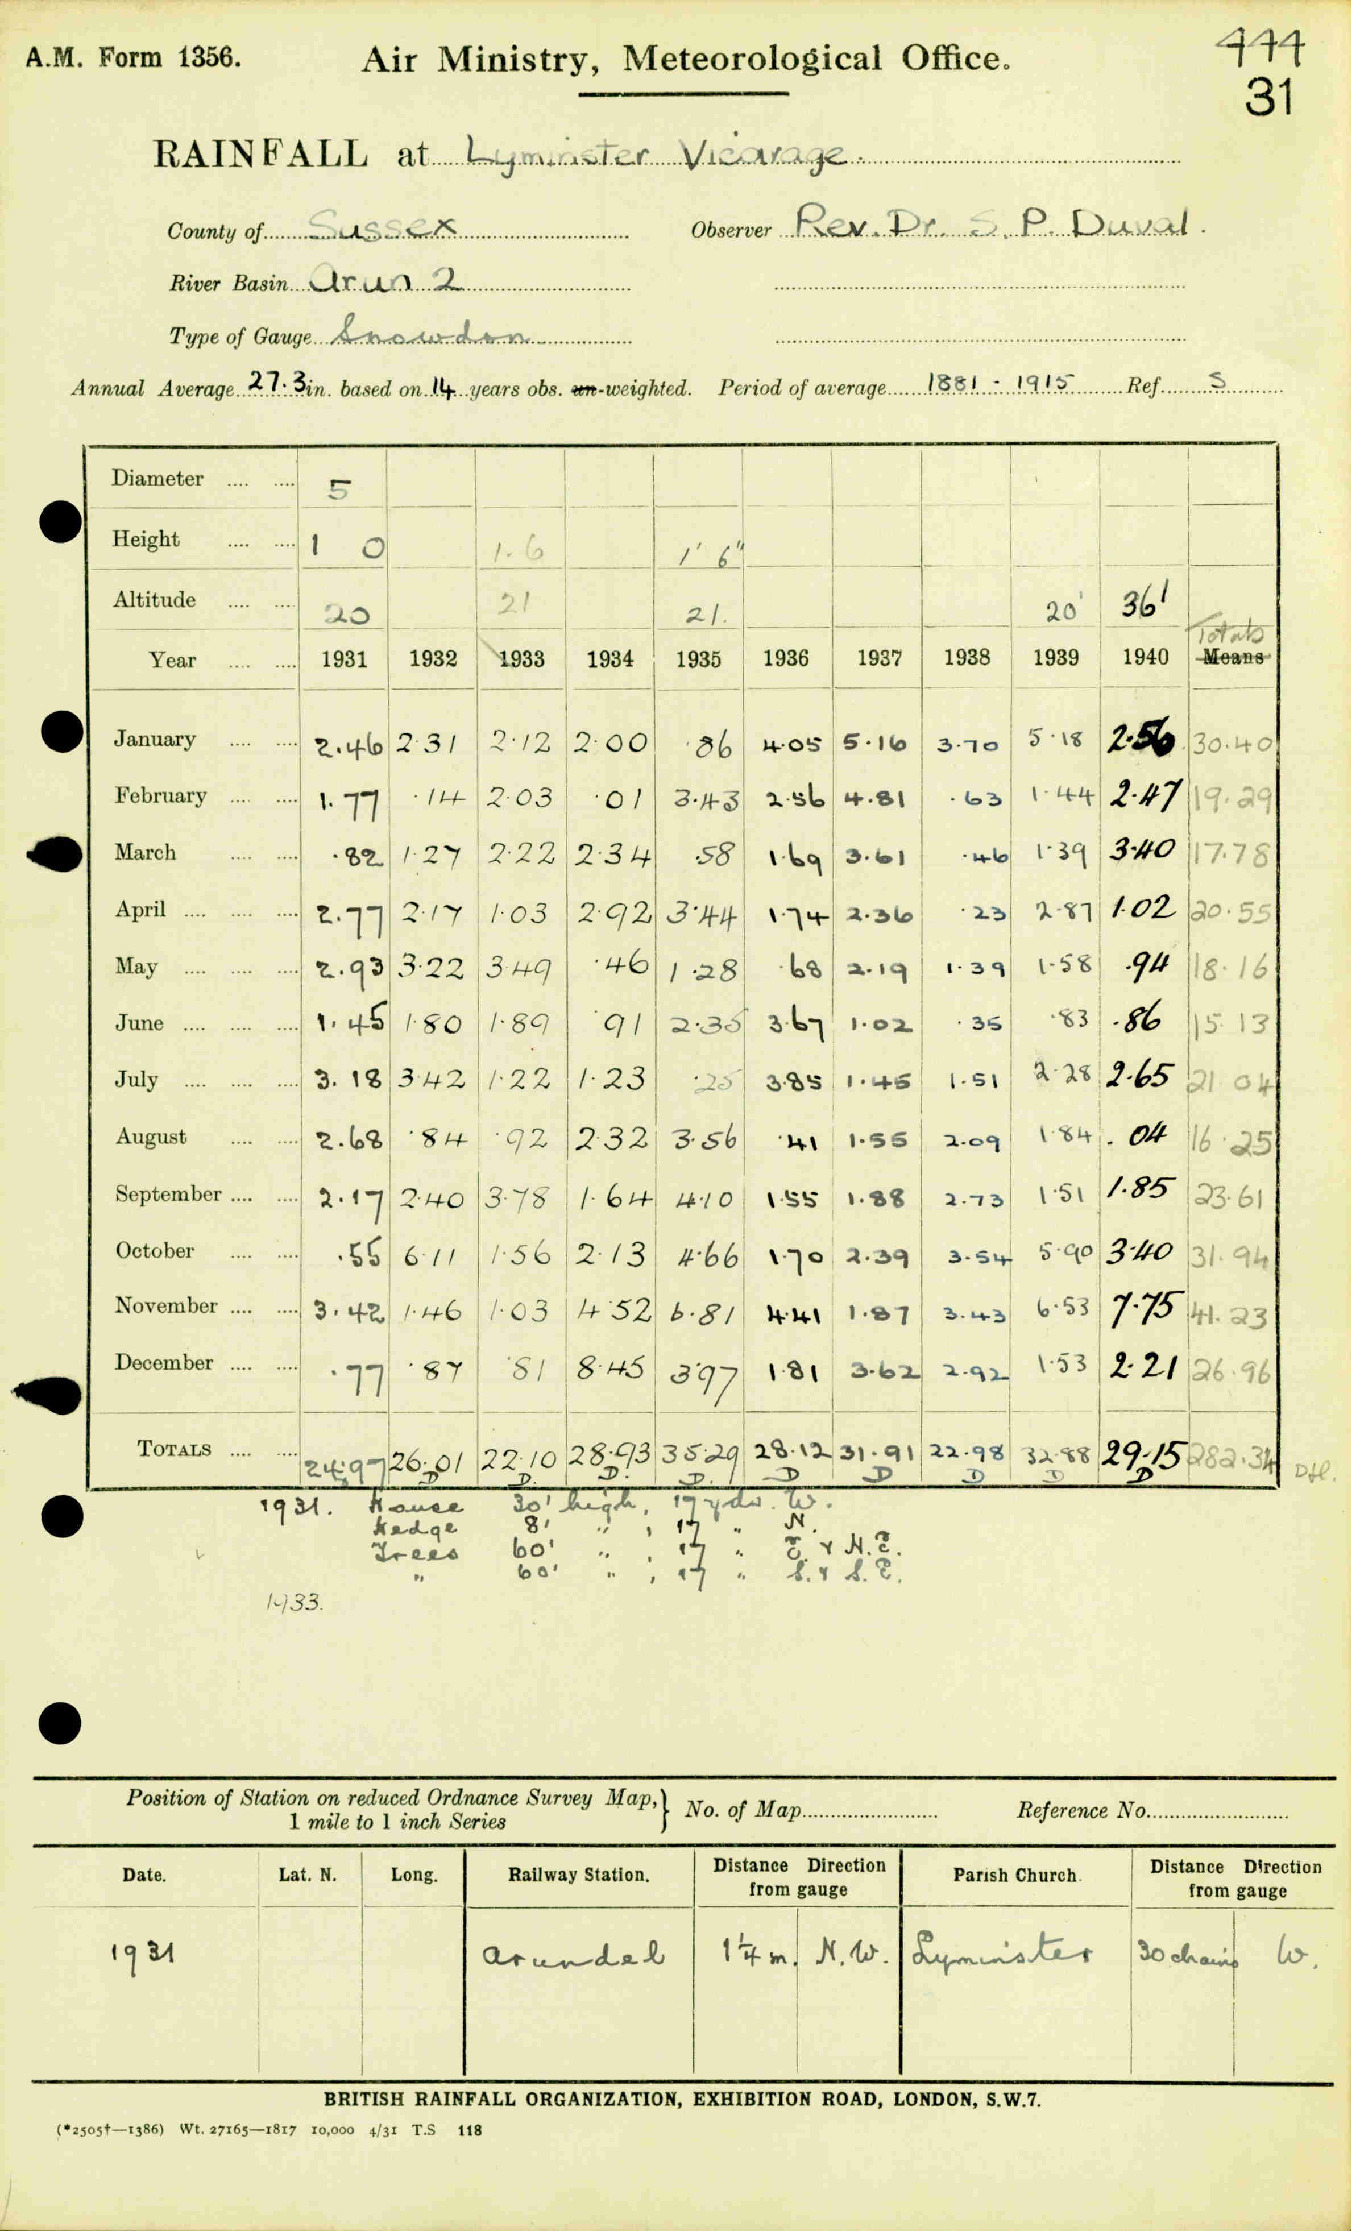 A.M. Form 1356. Air Ministry, Meteorological Office. 444
31
RAINFALL at Lyminster Vicarage.
County of Sussex Observer Rev. Dr. S. P. Duval.
River Basin Arun 2
Type of Gauge Snowdon
Annual Average 27.3 in. based on 14 years obs. un-weighted. Period of average 1881 - 1915 Ref. S
Diameter .... .... 5
Height .... .... 1 0 1.6 1' 6"
Altitude .... .... 20 21 21. 20' 36'
Totals
Year .... .... 1931 1932 1933 1934 1935 1936 1937 1938 1939 1940 Means
January .... .... 2.46 2.31 2.12 2.00 .86 4.05 5.16 3.70 5.18 2.56 30.40
February .... .... 1.77 .14 2.03 .01 3.43 2.56 4.81 .63 1.44 2.47 19.29
March .... .... .82 1.27 2.22 2.34 .58 1.69 3.61 .46 1.39 3.40 17.78
April .... .... .... 2.77 2.17 1.03 2.92 3.44 1.74 2.36 .23 2.87 1.02 20.55
May .... .... .... 2.93 3.22 3.49 .46 1.28 .68 2.19 1.39 1.58 .94 18.16
June .... .... .... 1.45 1.80 1.89 .91 2.35 3.67 1.02 .35 .83 .86 15.13
July .... .... .... 3.18 3.42 1.22 1.23 .25 3.85 1.45 1.51 2.28 2.65 21.04
August .... .... 2.68 .84 .92 2.32 3.56 .41 1.55 2.09 1.84 .04 16.25
September .... .... 2.17 2.40 3.78 1.64 4.10 1.55 1.88 2.73 1.51 1.85 23.61
October .... .... .55 6.11 1.56 2.13 4.66 1.70 2.39 3.54 5.90 3.40 31.94
November .... .... 3.42 1.46 1.03 4.52 6.81 4.41 1.87 3.43 6.53 7.75 41.23
December .... .... .77 .87 .81 8.45 3.97 1.81 3.62 2.92 1.53 2.21 26.96
TOTALS .... .... 24.97 26.01 22.10 28.93 35.29 28.12 31.91 22.98 32.88 29.15 282.34
D D. D. D. D D D D D
1931. House 30' high, 17 yds. W.
Hedge 8' " , 17 " N.
Trees 60' " , 17 " E. & N.E.
" 60' " , 17 " S. & S.E.
1933.
Position of Station on reduced Ordnance Survey Map,} No. of Map Reference No.
1 mile to 1 inch Series
Date. Lat. N. Long. Railway Station. Distance Direction from gauge Parish Church. Distance Direction from gauge
1931 Arundel 1¼ m. N.W. Lyminster 30 chains W.
BRITISH RAINFALL ORGANIZATION, EXHIBITION ROAD, LONDON, S.W.7.
(*2505†—1386) Wt. 27165—1817 10,000 4/31 T.S 118